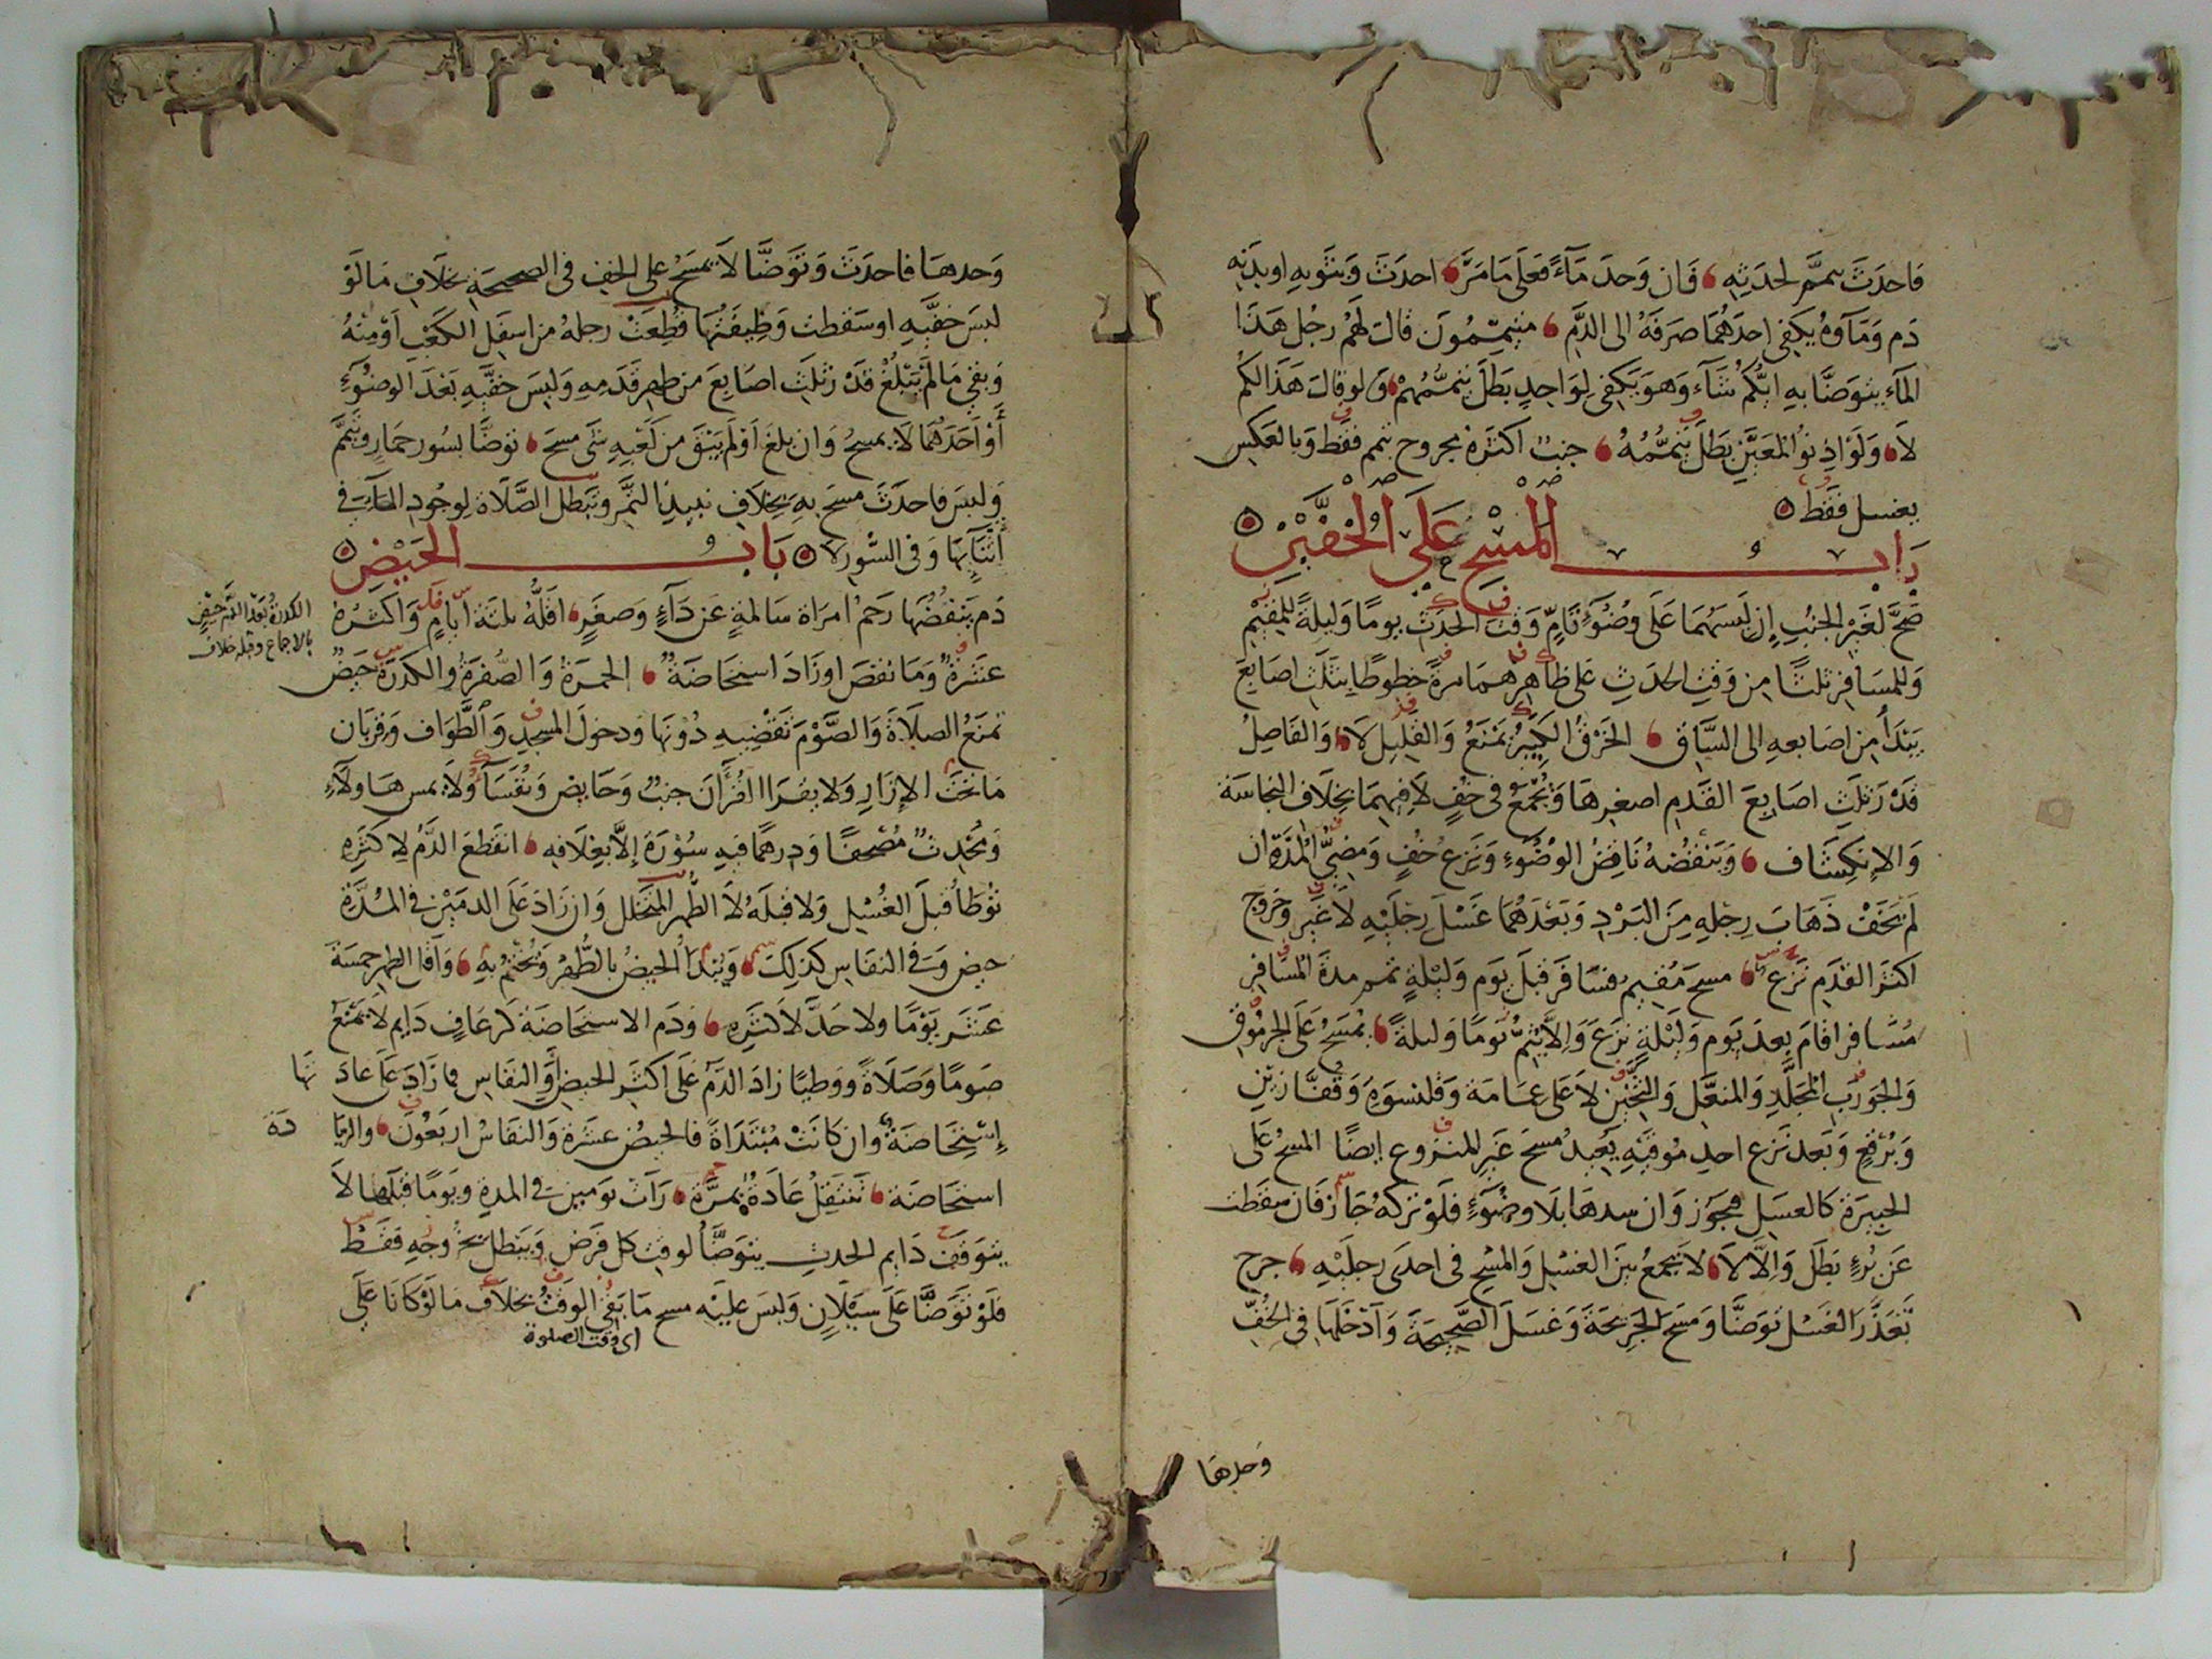 فاحدَثَ تيمَّم لحدَثِه فَان وَجدَ مَآءً فَعَلَى مَا مَرَّ احدَثَ وَبثَوبِهِ او بدَنِهِ
دَم وَمَآوهُ يكَفِى احدَهُمَا صَرَفَهُ الى الدَّم متيمِّمُونَ قالَ لَهُم رجُل هَذَا
المَآء يتوَضَّا بهِ ايُّكم شَآء وَهوَ يَكفِى لِوَاحِدٍ بَطَلَ تيَمُّمُهُمْ وَلو قالَ هَذَا لكُم
لاَ وَلَو اذِنُوْا لمُعَيَّنٍ بَطَلَ تيَمُّمُهُ جنبٌ اكثَرُهُ مجروح تيمم فقَط وَبالعَكِس
يغسل فقَط
بَابُ المَسْح عَلَى الخُفَّيْن
صَحَّ لغَير الجنُبِ اِن لَبِسَهُمَا عَلَى وضُوءٍ تَامٍّ وَقتَ الحَدَثِ يومًا وَليلةً للمُقِيْم
وَللمسَافِر ثلثًا مِن وَقتِ الحدَثِ عَلى ظَاهِرِهمَا مرَةً خطوطًا بثلَثِ اصَابعَ
يَبْدَأُ مِن اصَابعهِ الى السَّاقِ الخَرْقُ الكَبِيْرُ يَمْنَعُ وَالقَلِيل لاَ وَالفَاصِلُ
قَدْرُ ثلَثِ اصَابعَ القَدَمِ اصغرِهَا وَيُجْمَعُ فى خُفٍ لاَ فيهِمَا بخِلَافِ النجاسَة
وَالاِنكِشَاف وَيَنقضُهُ نَاقِضُ الوُضُوءِ وَنَزعُ خُفٍ وَمضِىُّ المُدَةِ ان
لَم يَخَفْ ذَهَابَ رِجْلِهِ مِنَ البَرْدِ وَبَعْدَهُمَا غَسْلَ رِجلَيْهِ لاَ غَيْر وَخرُوج
اكثَر القَدَم نَزع مسحَ مُقيم فسَافرَ قبلَ يَوم وَلَيْلةٍ تمم مدةَ المُسَافِر
مُسَافر اقَامَ بعدَ يَوم وَلَيْلةٍ نزَعَ وَاِلاَّ يُتِمُّ يَومًا وَليلةً يمْسَحُ عَلَى الجرمُوق
وَالجَورَبِ المُجَلَّدِ وَالمنعَّل وَالثَّخِيْنِ لاَ عَلَى عمَامَة وَقَلنسوَة وَقفَّازين
وَبُرْقع وَبَعد نَزع احدِ مُوقَيْهِ يُعِيدُ مسحَ غَير المنزوع ايضًا المسحُ عَلَى
الجبيرَة كَالغسَل فيجوَز وَان شدهَا بِلَا وضُوءٍ فلَوْ تركهُ جَازَ فَان سقَطت
عَن بُرْءٍ بَطَلَ وَاِلاَّ لاَ لاَ يَجمعُ بَينَ الغسْلِ وَالمسْحِ فى احدَى رِجلَيْهِ جرح
تَعَذَّرَ الغَسْل تَوضَّا وَمَسَحَ الجَرِيحَةَ وَغسَلَ الصَّحِيحَةَ وَادخَلَهَا فِى الخُفِّ
وَحدهَا
وَحدهَا فاحدَثَ وَتوَضَّا لاَ يمسَحُ عَلى الخفِ فى الصحيحَةِ بخلَافِ مَا لَوْ
لبسَ خفَّيهِ او سَقطت وَظِيفَتُهَا قُطِعَتْ رجلهُ من اسفَلِ الكعْبِ اَوْ مِنْهُ
وَبقى مَا لَم يَبْلُغْ قَدْرَ ثلَثِ اصَابعَ من ظهرِ قَدَمِهِ وَلبِسَ خفَّيهِ بَعْدَ الوضُوءِ
أَوْ احَدَهُمَا لاَ يمسحُ وَان بلغَ اَوْ لَم يَبْقَ من كَعْبِهِ شَىٌ مسحَ توَضَّا بسُور حمَارٍ وتيمَّمَ
وَلبسَ فاحدَثَ مسحَ بهِ بخِلَافِ نبيذِ التمَّر وتبطل الصَّلَاة لِوجُودِ المَآءِ فى
أَثْنَآئِهَا وَفى السُّور لاَ بَابُ الحَيْض
دَم يَنفُضُهَا رَحمُ امرَاة سَالمةٍ عَن دَآءٍ وَصغَرٍ اقلُّهُ ثلثةَ ايَّامٍ وَاكثرُهُ
عَشَرَةٌ وَمَا نقصَ او زَادَ استحَاضَةٌ الحمرَةُ وَالصُّفرَةُ وَالكدرَةُ حَيضٌ
الكدرةُ بَعد الدَّم حَيْضٍ
بالاجماع وقبله خلاف
تمنَعُ الصلاَةَ وَالصَّوْمَ تقْضِيهِ دُوْنَهَا وَدخولَ المسْجِدِ وَالطَّوَاف وَقربَان
مَا تحتَ الاِزَارِ وَلا يقرَا القُرْآنَ جنبٌ وَحَايض وَنُفَسَآءُ وَلاَ يمس هَاولآءِ
وَمُحْدِثٌ مُصْحفًا وَدِرهمًا فيهِ سُوْرَة اِلاَّ بغِلَافِهِ انقَطعَ الدَّمُ لاِكثَرِهِ
توْطَأُ قبلَ الغُسْلِ وَلا قبلَهُ لاَ الطُّهر المتخَلل وَان زَادَ عَلَى الدمَيْن فى المُدَّةِ
حيض وَفى النفَاسِ كذلِكَ وَيُبْدَأُ الحيضُ بالطُّهْرِ وَيُخْتَمُ بهِ وَاقل الطهرِ خمسَةَ
عَشَر يَوْمًا ولا حَدَّ لاَكثَرِهِ وَدَم الاستحَاضَة كرعَافٍ دَايم لاَ يَمْنَعُ
صَومًا وَصَلاَةً وَوطيًا زَادَ الدَّمُ عَلَى اكثَر الحيضِ وَالنفَاسِ فما زَادَ عَلَى عَادَتِهَا
إِسْتِحَاضَةٌ وَان كَانَتْ مُبْتَدَاةً فالحيضُ عشَرَة وَالنفَاسُ اربَعُوْنَ وَالزيَا دَة
استحَاضَة تَنْتَقِلُ عَادَةٌ بمَرَّةٍ رَات يَومين فى المدةِ وَيَومًا قبلَهَا لاَ
يتوَقَف دَايم الحدثِ يتوَضَّأُ لوقت كل فَرض وَيَبْطل بخُرُوجِهِ فقَطْ
فلَوْ تَوَضَّا عَلَى سيَلَانٍ وَلبسَ عليْه مسح مَا بَقِىَ الوَقتُ بخلَاف مَا لَوْ كَانَا عَلَى
اى وقت الصلوة